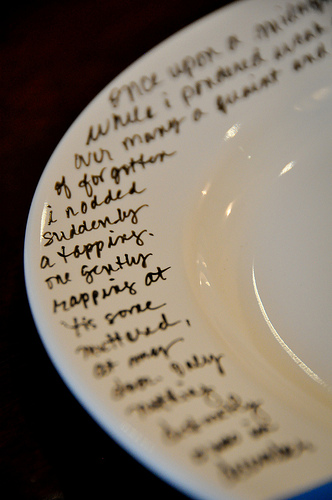 once upon a midnight
while i pondered weak
over many a quaint and
of forgotten
i nodded
suddenly
a tapping.
one gently
rapping at
'tis some
muttered,
at my
door. only
nothing
distinctly
was in
December